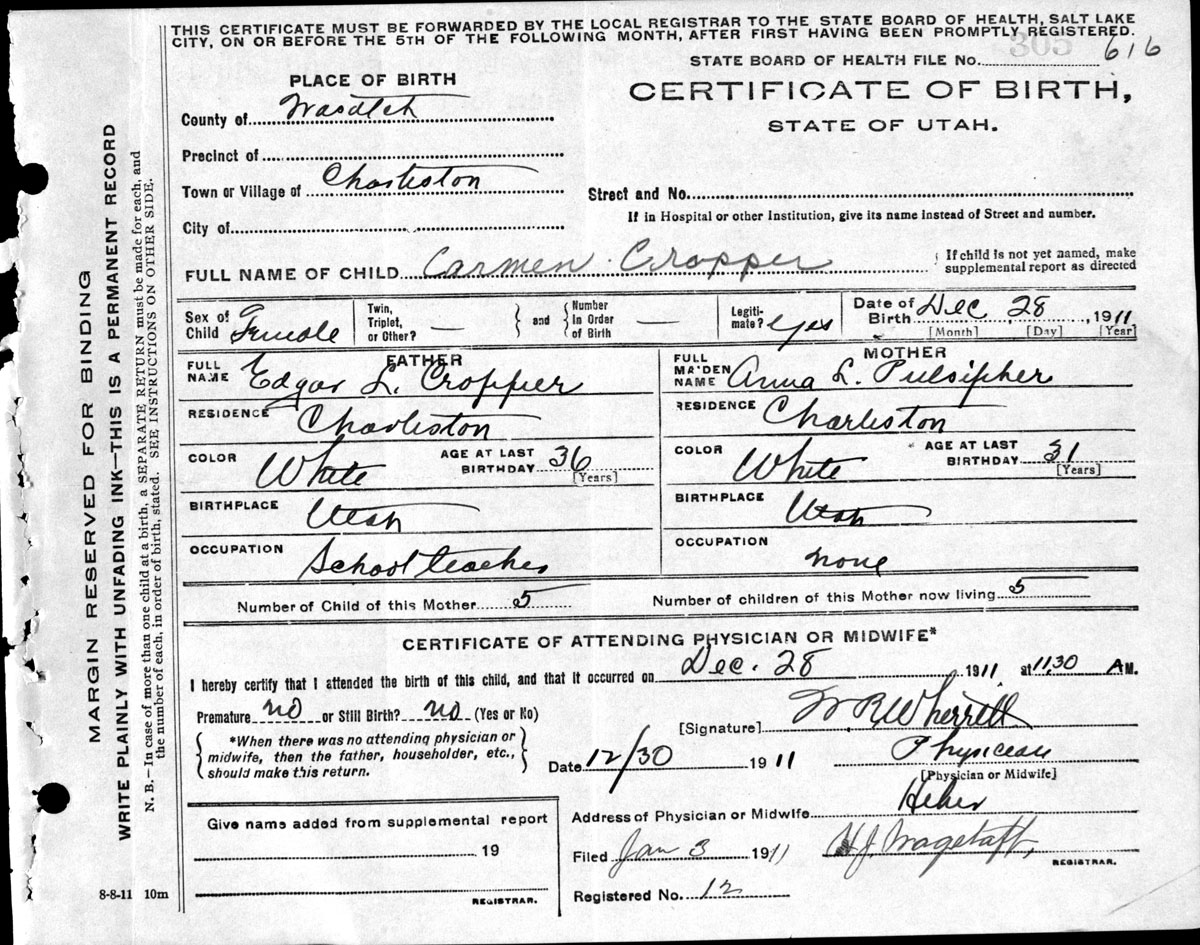 THIS CERTIFICATE MUST BE FORWARDED BY THE LOCAL REGISTRAR TO THE STATE BOARD OF HEALTH, SALT LAKE
CITY, ON OR BEFORE THE 5TH OF THE FOLLOWING MONTH, AFTER FIRST HAVING BEEN PROMPTLY REGISTERED.
305
STATE BOARD OF HEALTH FILE No. 616
PLACE OF BIRTH
CERTIFICATE OF BIRTH,
STATE OF UTAH.
County of Wasatch
Precinct of
Town or Village of Charleston
Street and No.
If in Hospital or other Institution, give its name instead of Street and number.
City of
FULL NAME OF CHILD Carmen Cropper
If child is not yet named, make
supplemental report as directed
Sex of Child Female
Twin, Triplet, or Other? —
and
Number In Order of Birth —
Legiti-mate? Yes
Date of Birth Dec 28, 1911
[Month] [Day] [Year]
FATHER
FULL NAME Edgar L. Cropper
RESIDENCE Charleston
COLOR White
AGE AT LAST BIRTHDAY 36
[Years]
BIRTHPLACE Utah
OCCUPATION School teacher
MOTHER
FULL MAIDEN NAME Anna L. Pulsipher
RESIDENCE Charleston
COLOR White
AGE AT LAST BIRTHDAY 31
[Years]
BIRTHPLACE Utah
OCCUPATION none
Number of Child of this Mother 5
Number of children of this Mother now living 5
CERTIFICATE OF ATTENDING PHYSICIAN OR MIDWIFE*
I hereby certify that I attended the birth of this child, and that it occurred on Dec. 28 1911 at 11.30 A M.
Premature no or Still Birth? no (Yes or No)
*When there was no attending physician or
midwife, then the father, householder, etc.,
should make this return.
[Signature] W R Wherritt
Date 12/30 1911
Physician
[Physician or Midwife]
Address of Physician or Midwife Heber
Give name added from supplemental report
19
REGISTRAR.
Filed Jan 3 1911
H.J. Wagstaff,
REGISTRAR.
Registered No. 12
8-8-11 10m
MARGIN RESERVED FOR BINDING
WRITE PLAINLY WITH UNFADING INK—THIS IS A PERMANENT RECORD
N. B.—In case of more than one child at a birth, a SEPARATE RETURN must be made for each, and
the number of each, in order of birth, stated. SEE INSTRUCTIONS ON OTHER SIDE.